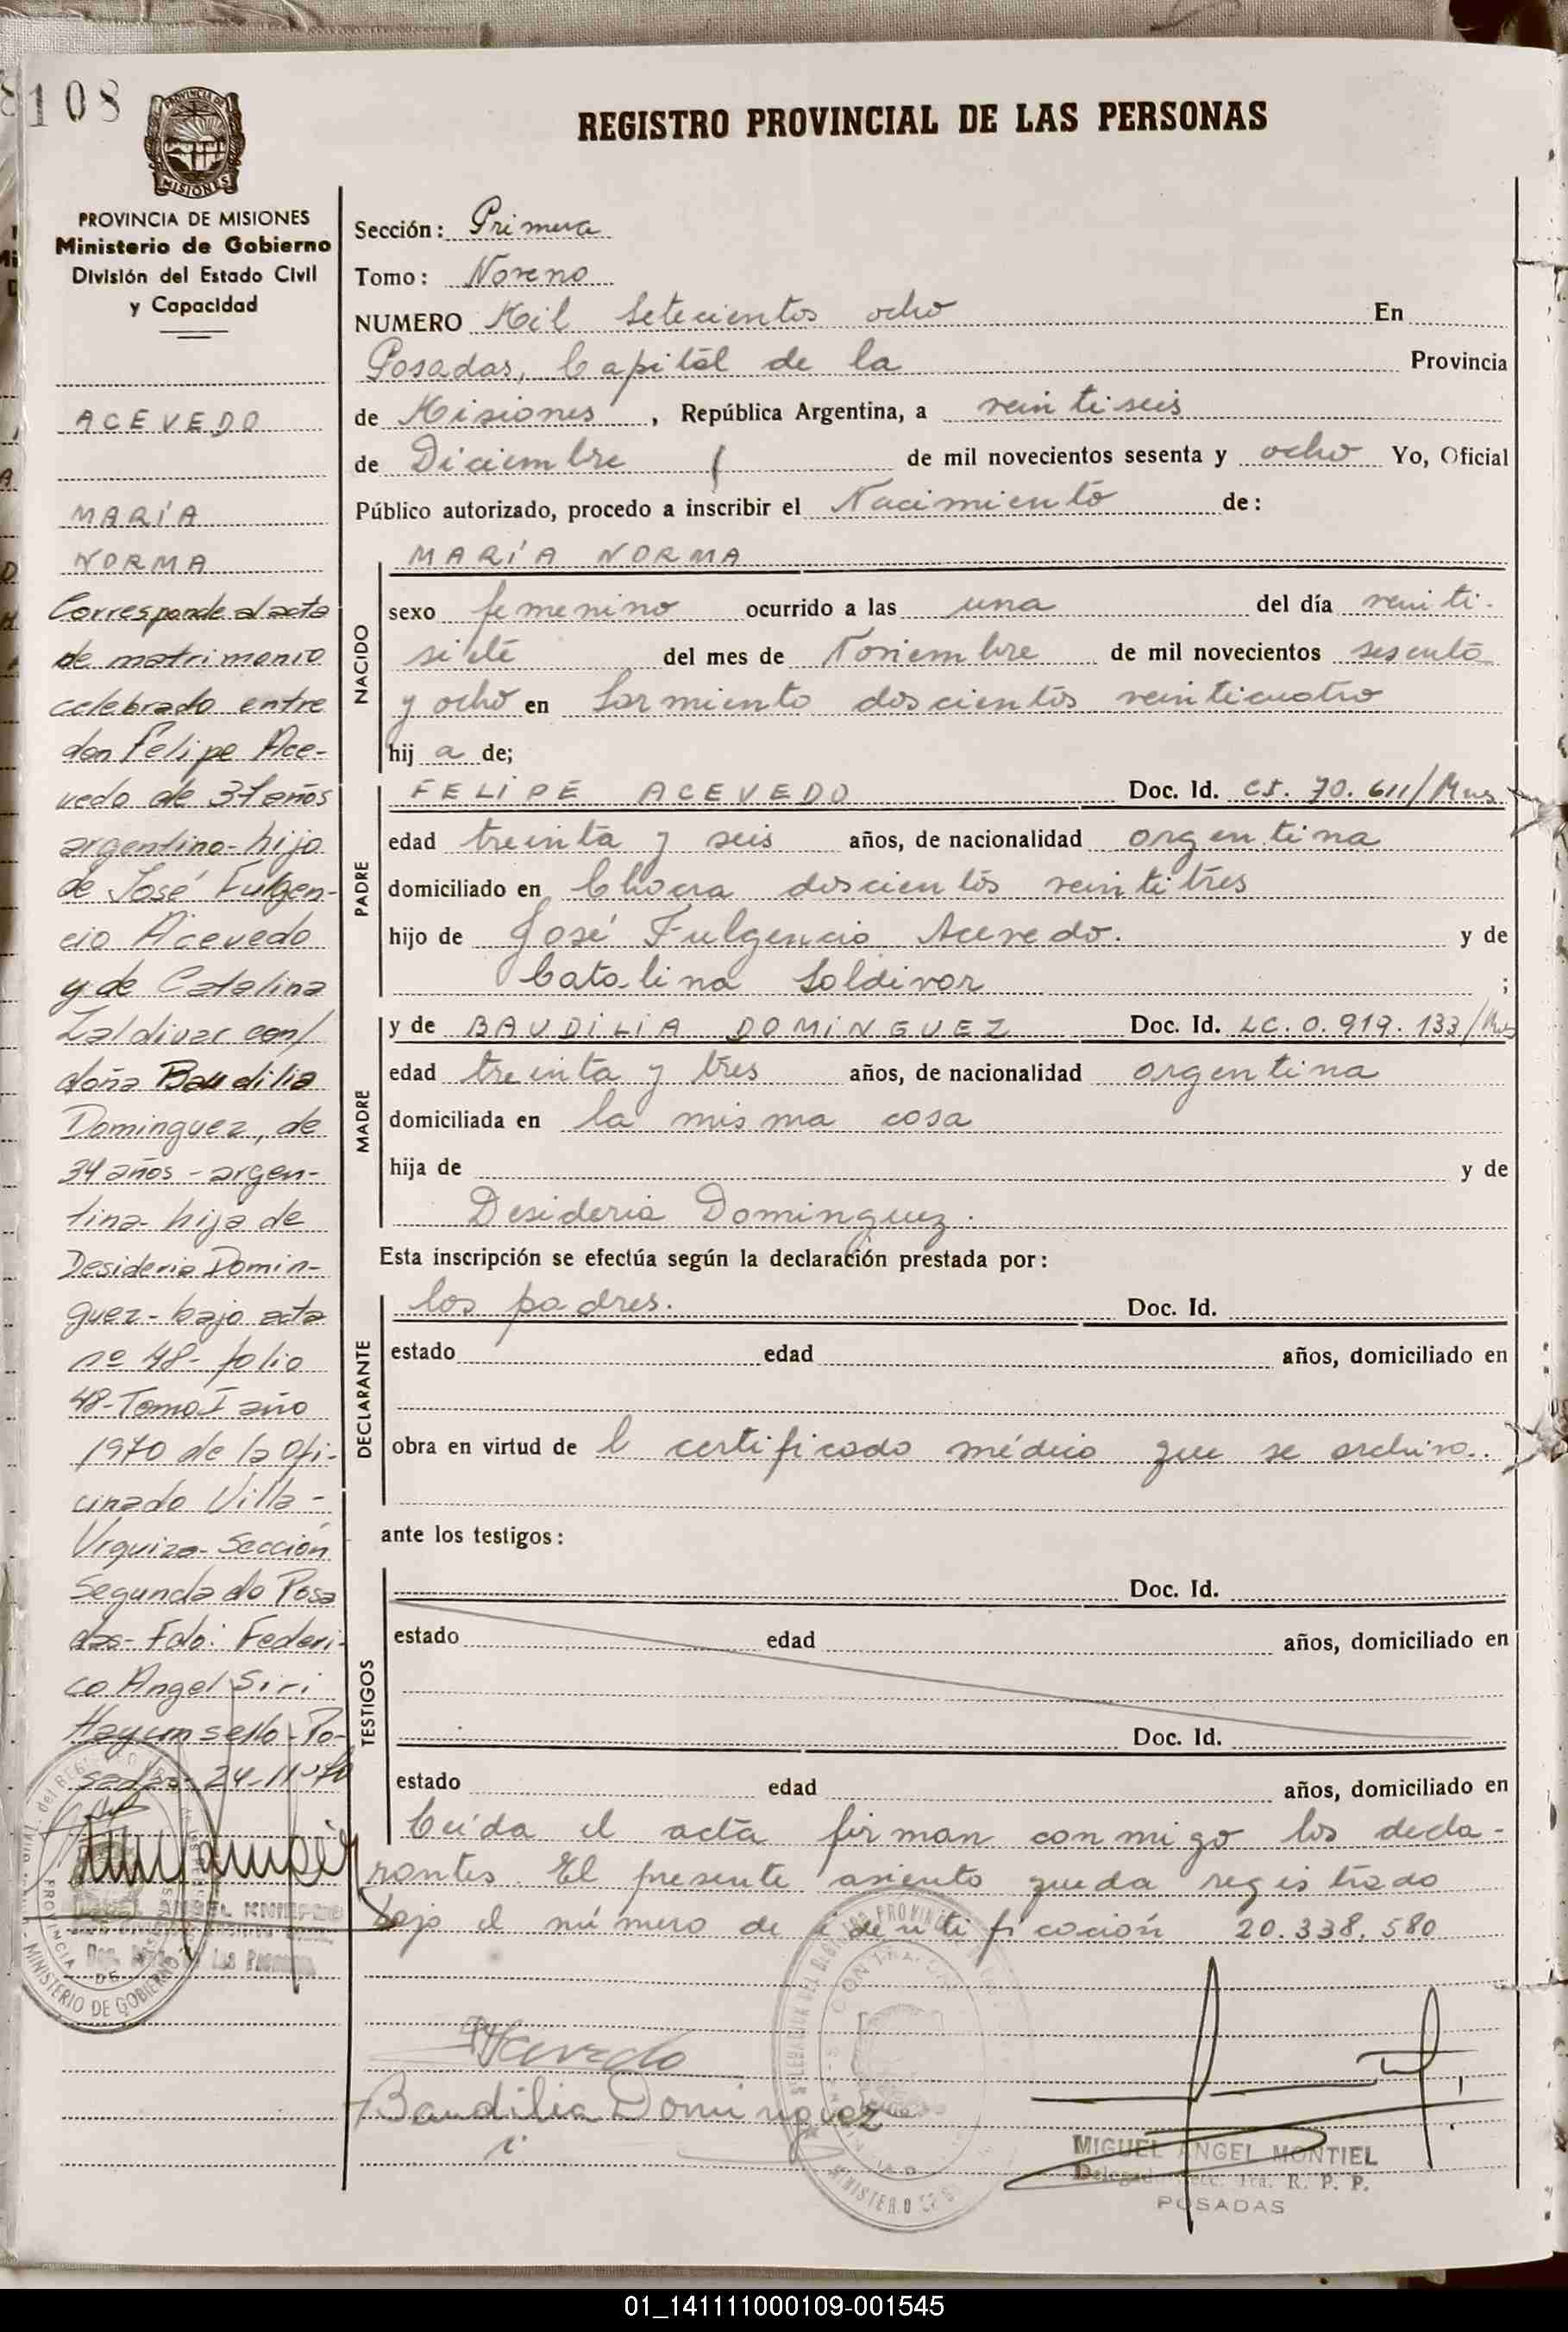 108
REGISTRO PROVINCIAL DE LAS PERSONAS
MISIONES
PROVINCIA DE MISIONES
Ministerio de Gobierno
División del Estado Civil
y Capacidad
ACEVEDO
MARÍA
NORMA
Corresponde al acta
de matrimonio
celebrado entre
don Felipe Ace-
vedo de 37 años
argentino-hijo
de José Fulgen-
cio Acevedo
y de Catalina
Zaldivar con/
doña Baudilia
Dominguez, de
34 años - argen-
tina-hija de
Desideria Domin-
guez-bajo acta
nº 48- folio
48-Tomo I año
1970 de la Ofi-
cina de Villa-
Urquiza-Sección
Segunda de Posa
das- Fdo: Federi-
co Angel Siri
Hay un sello-Po-
sadas-24-11-70
MINISTERIO DE GOBIERNO
PROVINCIA DE
Sección: Primera
Tomo: Noveno
NUMERO Mil Setecientos ocho En
Posadas, Capital de la Provincia
de Misiones, República Argentina, a veintiseis
de Diciembre de mil novecientos sesenta y ocho Yo, Oficial
Público autorizado, procedo a inscribir el Nacimiento de:
NACIDO
MARÍA NORMA
sexo femenino ocurrido a las una del día veinti-
siete del mes de Noviembre de mil novecientos sesenta
y ocho en Sarmiento doscientos veinticuatro
hij a de;
PADRE
FELIPE ACEVEDO Doc. Id. CI. 70.611/Mns
edad treinta y seis años, de nacionalidad argentina
domiciliado en Chacra doscientos veintitres
hijo de José Fulgencio Acevedo. y de
Catalina Soldivar ;
MADRE
y de BAUDILIA DOMINGUEZ Doc. Id. LC. 0.919.133/Mns
edad treinta y tres años, de nacionalidad argentina
domiciliada en la misma casa
hija de y de
Desideria Dominguez.
Esta inscripción se efectúa según la declaración prestada por:
DECLARANTE
los padres. Doc. Id.
estado edad años, domiciliado en
obra en virtud de l certificado médico que se archiva.
ante los testigos:
TESTIGOS
Doc. Id.
estado edad años, domiciliado en
Doc. Id.
estado edad años, domiciliado en
Leída el acta firman conmigo los decla-
rantes. El presente asiento queda registrado
bajo el número de identificación 20.338.580
Acevedo
Baudilia Dominguez
MIGUEL ANGEL MONTIEL
Delegado Secc. 1ra. R. P. P.
POSADAS
01_141111000109-001545